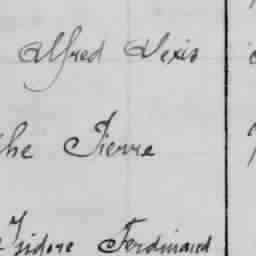 Alfred Alexis
the Pierre
Isidore Ferdinand